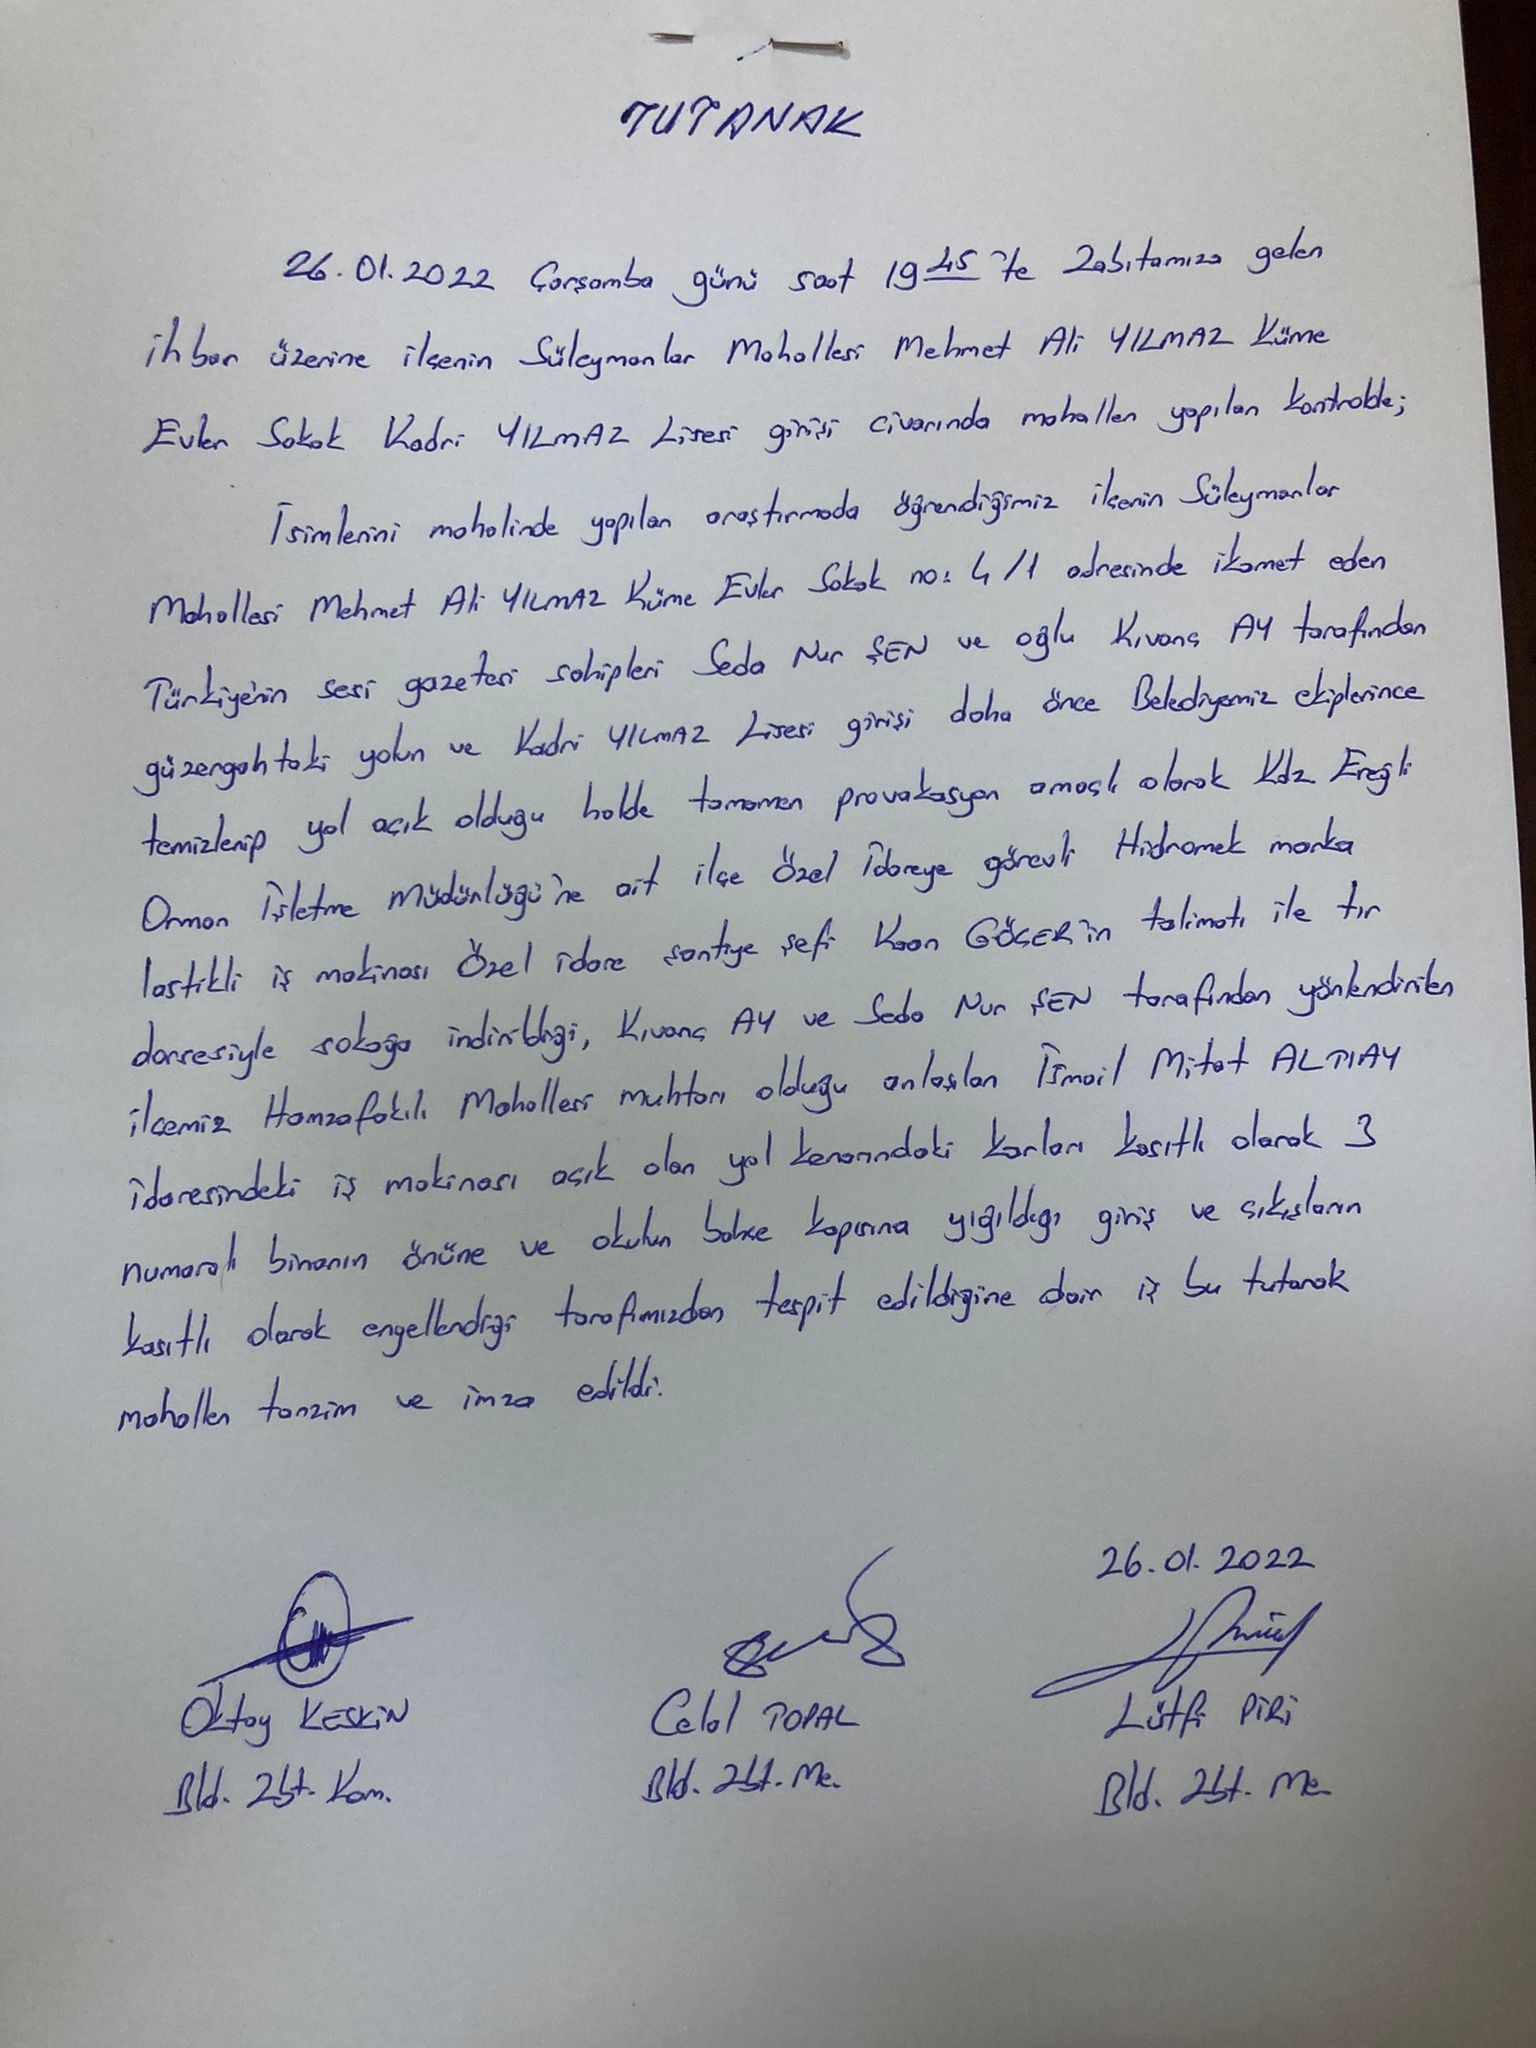 TUTANAK
26.01.2022 Çarşamba günü saat 19 45'te Zabıtamıza gelen
ihbar üzerine ilçenin Süleymanlar Mahallesi Mehmet Ali YILMAZ Küme
Evler Sokak Kadri YILMAZ Lisesi girişi civarında mahallen yapılan kontrolde;
İsimlerini mahalinde yapılan araştırmada öğrendiğimiz ilçenin Süleymanlar
Mahallesi Mehmet Ali YILMAZ Küme Evler Sokak no: 4/1 adresinde ikamet eden
Türkiye'nin sesi gazetesi sahipleri Seda Nur ŞEN ve oğlu Kıvanç AY tarafından
güzergahtaki yolun ve Kadri YILMAZ Lisesi girişi daha önce Belediyemiz ekiplerince
temizlenip yol açık olduğu halde tamamen provakasyon amaçlı olarak Kdz Ereğli
Orman İşletme Müdürlüğü'ne ait ilçe Özel İdareye görevli Hidromek marka
lastikli iş makinası Özel idare şantiye şefi Kaan GÖÇER'in talimatı ile tır
dorsesiyle sokağa indirildiği, Kıvanç AY ve Seda Nur ŞEN tarafından yönlendirilen
ilçemiz Hamzafakılı Mahallesi muhtarı olduğu anlaşılan İsmail Mitat ALTIAY
idaresindeki iş makinası açık olan yol kenarındaki karları kasıtlı olarak 3
numaralı binanın önüne ve okulun bahçe kapısına yığıldığı giriş ve çıkışların
kasıtlı olarak engellendiği tarafımızdan tespit edildiğine dair iş bu tutanak
mahallen tanzim ve imza edildi.
26.01.2022
Oktay KESKİN Celal TOPAL Lütfi PİRİ
Bld. Zbt. Kom. Bld. Zbt. Me. Bld. Zbt. Me.